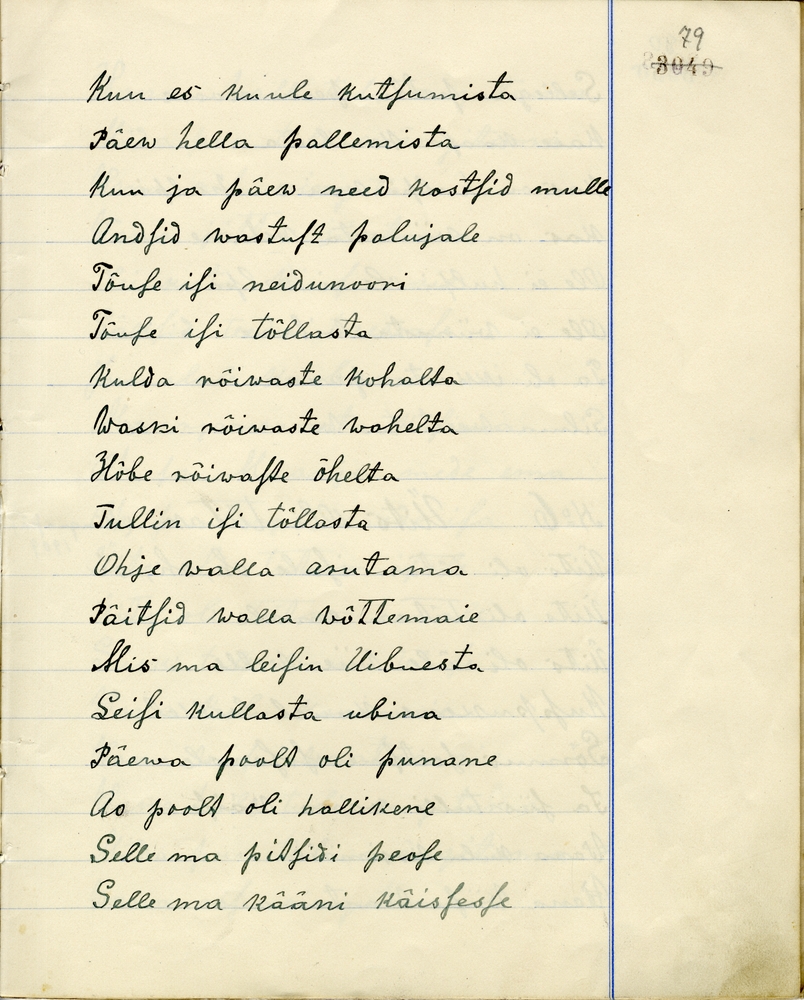 79
3049
Kuu es kuule kutsumista
Päew hella pallemista
Kuu ja päew need kostsid mulle
Andsid wastust palujale
Tôuse isi neidunoori
Tôuse isi tôllasta
Kulda rôiwaste kohalta
Waski rôiwaste wahelta
Hôbe rôiwaste ôhelta
Tullin isi tôllasta
Ohje walla arutama
Päitsid walla wôttemaie
Mis ma leisin Uibuesta
Leisi kullasta ubina
Päewa poolt oli punane
Ao poolt oli hallikene
Selle ma pitsidi peose
Selle ma kääni käissesse